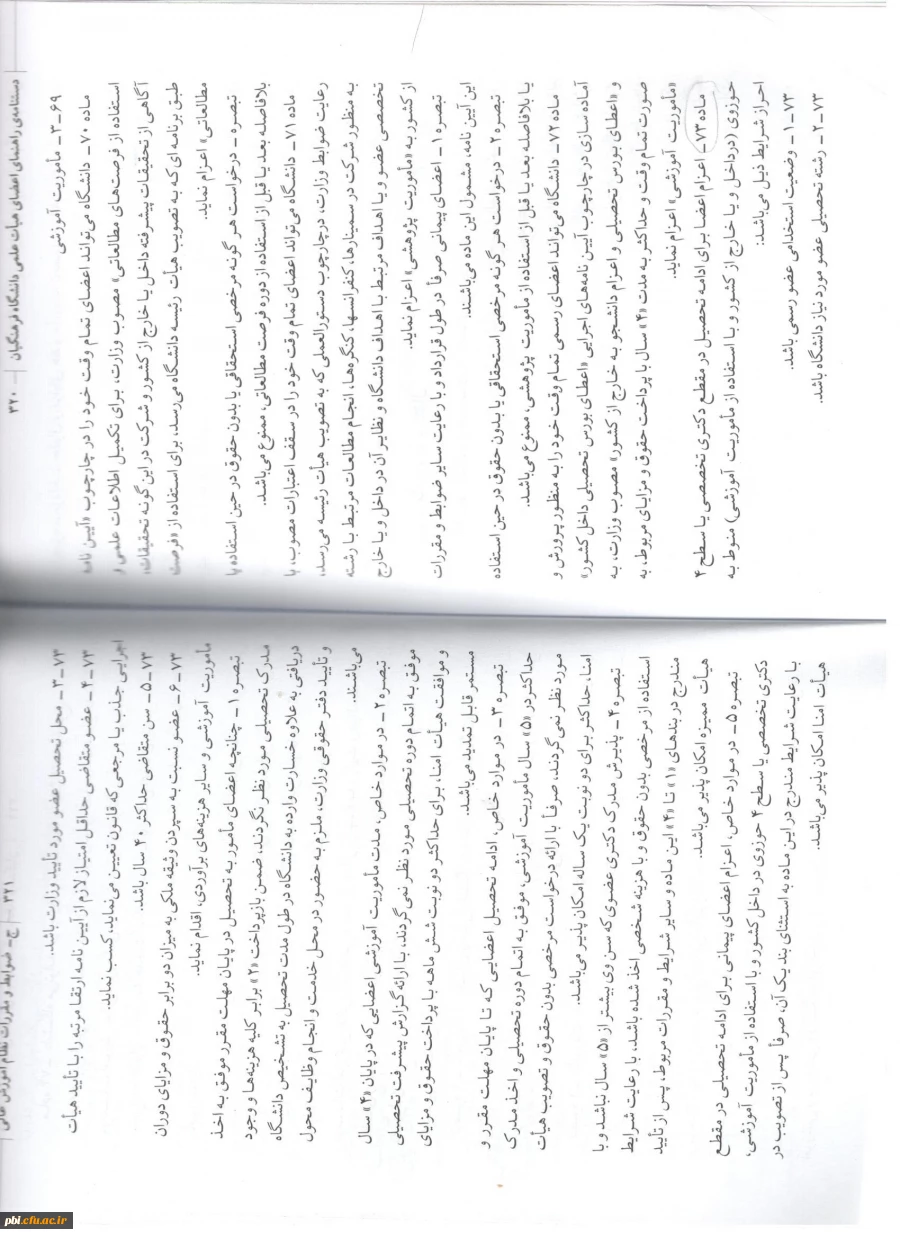 دستنامه‌ی راهنمای اعضای هیأت علمی دانشگاه فرهنگیان | ۳۲۰
۶۹ـ ۳ـ مأموریت آموزشی
ماده ۷۰ـ دانشگاه می‌تواند اعضای تمام وقت خود را در چارچوب «آیین نامه
استفاده از فرصت‌های مطالعاتی» مصوب وزارت، برای تکمیل اطلاعات علمی و
آگاهی از تحقیقات پیشرفته داخل یا خارج از کشور و شرکت در این گونه تحقیقات،
طبق برنامه ای که به تصویب هیأت رئیسه دانشگاه می‌رسد، برای استفاده از «فرصت
مطالعاتی» اعزام نماید.
تبصره ـ درخواست هر گونه مرخصی استحقاقی یا بدون حقوق در حین استفاده یا
بلافاصله بعد یا قبل از استفاده از دوره فرصت مطالعاتی، ممنوع می‌باشد.
ماده ۷۱ـ دانشگاه می‌تواند اعضای تمام وقت خود را در سقف اعتبارات مصوب، با
رعایت ضوابط وزارت، در چارچوب دستورالعملی که به تصویب هیأت رئیسه می‌رسد،
به منظور شرکت در سمینارها، کنفرانسها، کنگره‌ها، انجام مطالعات مرتبط با رشته
تخصصی عضو و یا اهداف مرتبط با اهداف دانشگاه و نظایر آن در داخل و یا خارج
از کشور به «مأموریت پژوهشی» اعزام نماید.
تبصره ۱ـ اعضای پیمانی صرفاً در طول قرارداد و با رعایت سایر ضوابط و مقررات
این آیین نامه، مشمول این ماده می‌باشند.
تبصره ۲ـ درخواست هر گونه مرخصی استحقاقی یا بدون حقوق در حین استفاده
یا بلافاصله بعد یا قبل از استفاده از مأموریت پژوهشی، ممنوع می‌باشد.
ماده ۷۲ـ دانشگاه می‌تواند اعضای رسمی تمام وقت خود را به منظور پرورش و
آماده سازی در چارچوب آیین نامه‌های اجرایی «اعطای بورس تحصیلی داخل کشور»
و «اعطای بورس تحصیلی و اعزام دانشجو به خارج از کشور» مصوب وزارت، به
صورت تمام وقت و حداکثر به مدت «۴» سال با پرداخت حقوق و مزایای مربوط، به
«مأموریت آموزشی» اعزام نماید.
ماده ۷۳ـ اعزام اعضا برای ادامه تحصیل در مقطع دکتری تخصصی یا سطح ۴
حوزوی (در داخل و یا خارج از کشور و با استفاده از مأموریت آموزشی) منوط به
احراز شرایط ذیل می‌باشد:
۷۳ـ ۱ـ وضعیت استخدامی عضو رسمی باشد.
۷۳ـ ۲ـ رشته تحصیلی عضو مورد نیاز دانشگاه باشد.
۳۲۱ | ج ـ ضوابط و مقررات نظام آموزش عالی
۷۳ـ ۳ـ محل تحصیل عضو مورد تأیید وزارت باشد.
۷۳ـ ۴ـ عضو متقاضی حداقل امتیاز لازم از آیین نامه ارتقا مرتبه را با تأیید هیأت
اجرایی جذب یا مرجعی که قانون تعیین می‌نماید، کسب نماید.
۷۳ـ ۵ـ سن متقاضی حداکثر ۴۰ سال باشد.
۷۳ـ ۶ـ عضو نسبت به سپردن وثیقه ملکی به میزان دو برابر حقوق و مزایای دوران
مأموریت آموزشی و سایر هزینه‌های برآوردی، اقدام نماید.
تبصره ۱ـ چنانچه اعضای مأمور به تحصیل در پایان مهلت مقرر موفق به اخذ
مدرک تحصیلی مورد نظر نگردند، ضمن بازپرداخت «۲» برابر کلیه هزینه‌ها و وجوه
دریافتی به علاوه خسارت وارده به دانشگاه در طول مدت تحصیل به تشخیص دانشگاه
و تأیید دفتر حقوقی وزارت، ملزم به حضور در محل خدمت و انجام وظایف محول
می‌باشند.
تبصره ۲ـ در موارد خاص، مدت مأموریت آموزشی اعضایی که در پایان «۴» سال
موفق به اتمام دوره تحصیلی مورد نظر نمی گردند، با ارائه گزارش پیشرفت تحصیلی
و موافقت هیأت امنا، برای حداکثر دو نوبت شش ماهه با پرداخت حقوق و مزایای
مستمر قابل تمدید می‌باشد.
تبصره ۳ـ در موارد خاص، ادامه تحصیل اعضایی که تا پایان مهلت مقرر و
حداکثر در «۵» سال مأموریت آموزشی، موفق به اتمام دوره تحصیلی و اخذ مدرک
مورد نظر نمی گردند، صرفاً با ارائه درخواست مرخصی بدون حقوق و تصویب هیأت
امنا، حداکثر برای دو نوبت یک ساله امکان پذیر می‌باشد.
تبصره ۴ـ پذیرش مدرک دکتری عضوی که سن وی بیشتر از «۵» سال نباشد و با
استفاده از مرخصی بدون حقوق و با هزینه شخصی اخذ شده باشد، با رعایت شرایط
مندرج در بندهای «۱» تا «۴» این ماده و سایر شرایط و مقررات مربوط، پس از تأیید
هیأت ممیزه امکان پذیر می‌باشد.
تبصره ۵ـ در موارد خاص، اعزام اعضای پیمانی برای ادامه تحصیلی در مقطع
دکتری تخصصی یا سطح ۴ حوزوی در داخل کشور و با استفاده از مأموریت آموزشی،
با رعایت شرایط مندرج در این ماده به استثنای بند یک آن، صرفاً پس از تصویب در
هیأت امنا امکان پذیر می‌باشد.
pbi.cfu.ac.ir